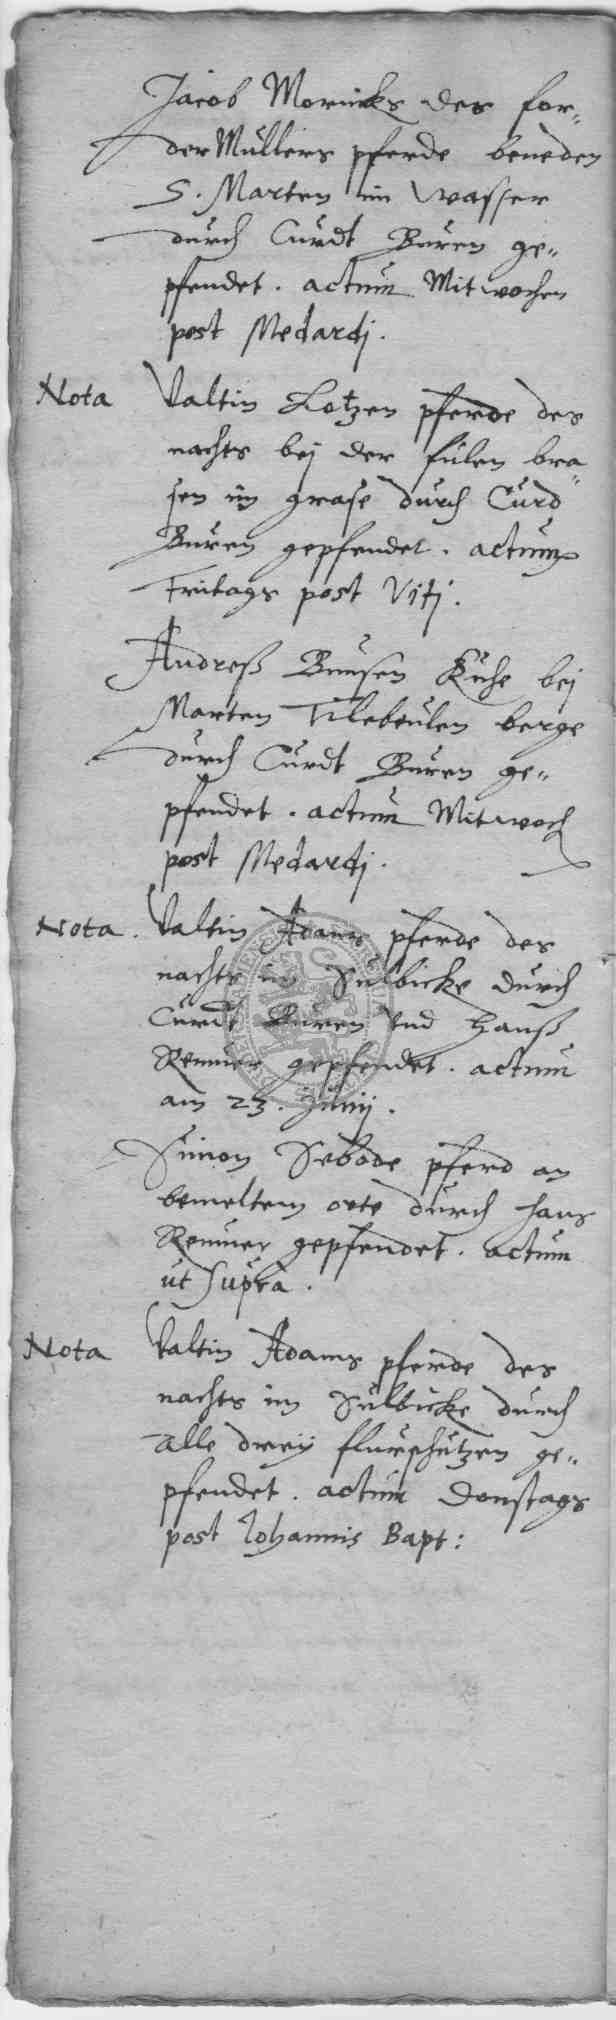 Jacob Mornicks des for=
der Müllers pferde beneden
S. Marten im wasser
durch Curdt Buren ge=
pfendet. actum Mitwochen
post Medardj.
Nota Valtin Lotzen pferde des
nachts bej der fulen bra=
sen im grase durch Curd
Buren gepfendet. actum
Fritags post Vitj.
Andreß Bunsen Kuhe bej
Marten Tilebeulen berge
durch Curdt Buren ge=
pfendet. actum Mitwoch
post Medardj.
Nota. Valtin Adams pferde des
nachts im Sulbicke durch
Curdt Buren vnd Hanß
Remmer gepfendet. actum
am 23. Junij.
Simon Sebode pferd an
bemeltem orte durch Hans
Remmer gepfendet. actum
ut supra.
Nota Valtin Adams pferde des
nachts im Sulbicke durch
alle dreij flurschutzen ge=
pfendet. actum Donstags
post Johannis Bapt: